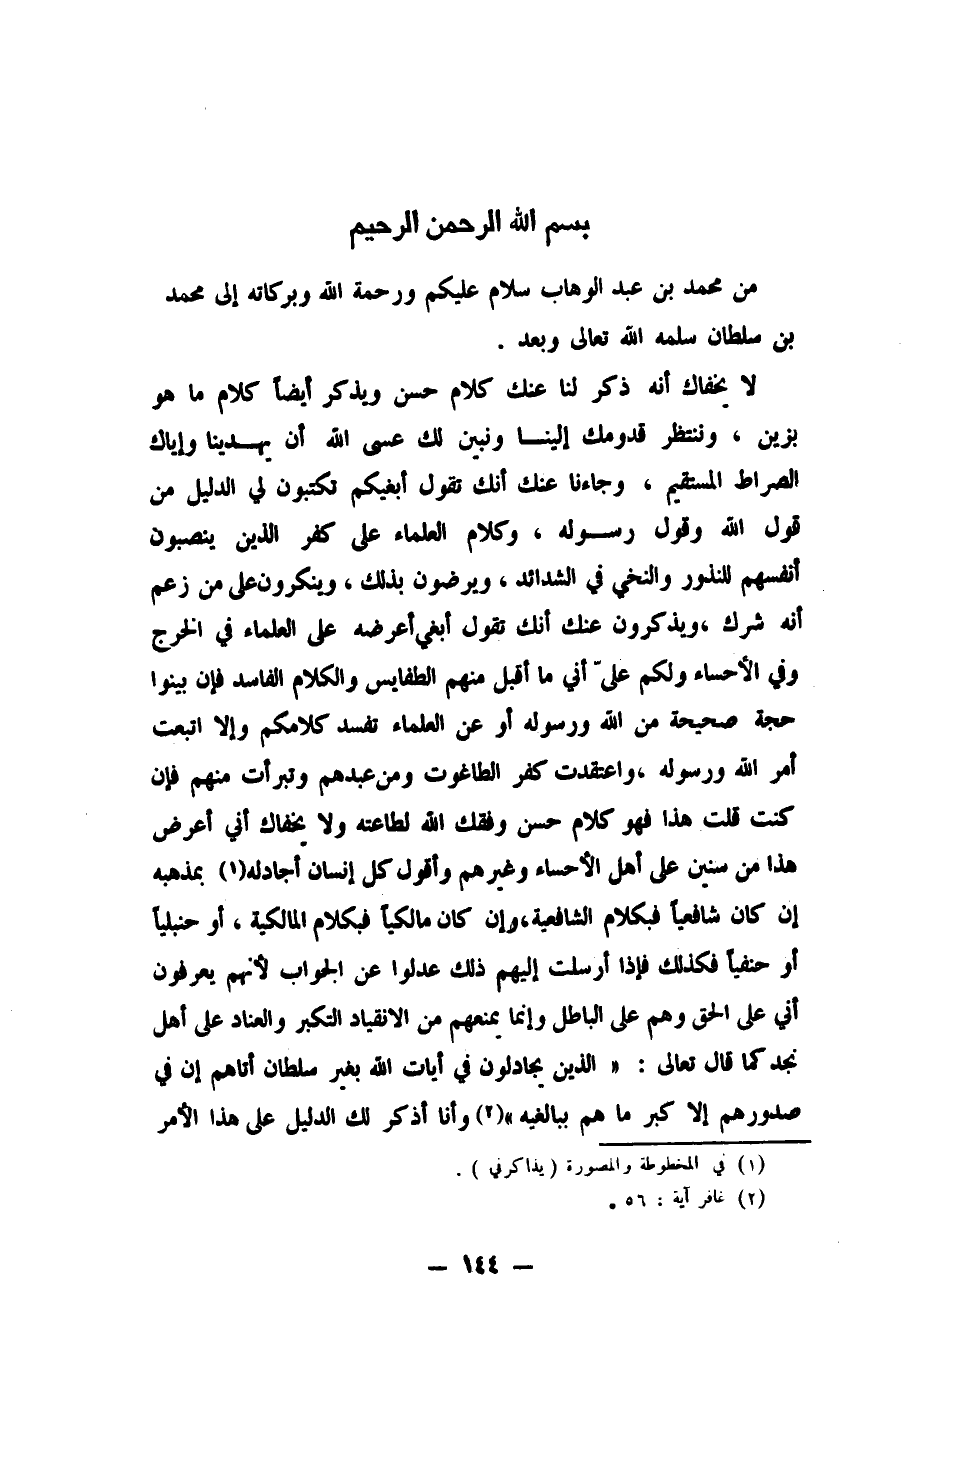 بسم الله الرحمن الرحيم
من محمد بن عبد الوهاب سلام عليكم ورحمة الله وبركاته إلى محمد
بن سلطان سلمه الله تعالى وبعد .
لا يخفاك أنه ذكر لنا عنك كلام حسن ويذكر أيضاً كلام ما هو
بزين ، وننتظر قدومك إلينــا ونبين لك عسى الله أن يهــدينا وإياك
الصراط المستقيم ، وجاءنا عنك أنك تقول أبغيكم تكتبون لي الدليل من
قول الله وقول رســوله ، وكلام العلماء على كفر الذين ينصبون
أنفسهم للنذور والنخي في الشدائد ، ويرضون بذلك ، وينكرون على من زعم
أنه شرك ،ويذكرون عنك أنك تقول أبغي أعرضه على العلماء في الخرج
وفي الأحساء ولكم عليّ أني ما أقبل منهم الطفايس والكلام الفاسد فإن بينوا
حجة صحيحة من الله ورسوله أو عن العلماء تفسد كلامكم وإلا اتبعت
أمر الله ورسوله ،واعتقدت كفر الطاغوت ومن عبدهم وتبرأت منهم فإن
كنت قلت هذا فهو كلام حسن وفقك الله لطاعته ولا يخفاك أني أعرض
هذا من سنين على أهل الأحساء وغيرهم وأقول كل إنسان أجادله(١) بمذهبه
إن كان شافعياً فبكلام الشافعية،وإن كان مالكياً فبكلام المالكية ، أو حنبلياً
أو حنفياً فكذلك فإذا أرسلت إليهم ذلك عدلوا عن الجواب لأنهم يعرفون
أني على الحق وهم على الباطل وإنما يمنعهم من الانقياد التكبر والعناد على أهل
نجد كما قال تعالى : « الذين يجادلون في أيات الله بغير سلطان أتاهم إن في
صدورهم إلا كبر ما هم ببالغيه »(٢) وأنا أذكر لك الدليل على هذا الأمر
(١) في المخطوطة والمصورة ( يذاكرني ) .
(٢) غافر آية : ٥٦ .
— ١٤٤ —